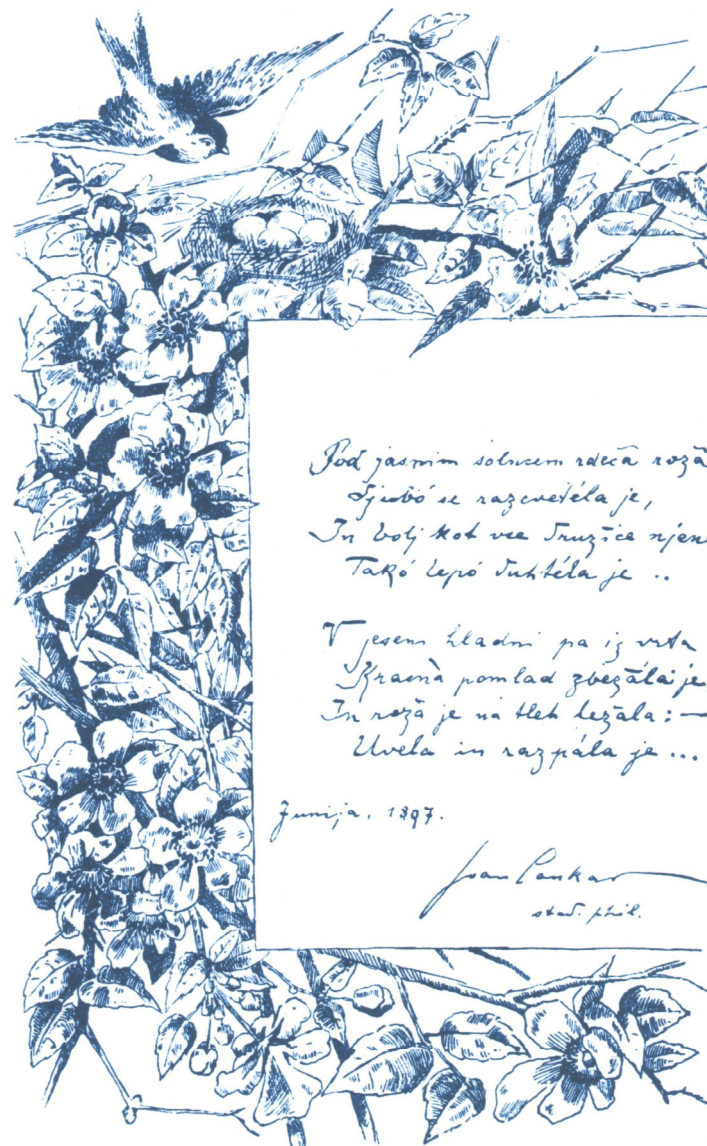 Pod jasnim solncem rdeča roža
Ljubó se razcvetéla je,
In bolj kot vse družice njen
Takó lepó duhtéla je ..
V jeseni hladni pa iz vrta
Krasnà pomlad zbežála je
In roža je na tleh ležala: —
Uvela in razpála je ...
Junija, 1897.
Ivan Cankar
stud. phil.